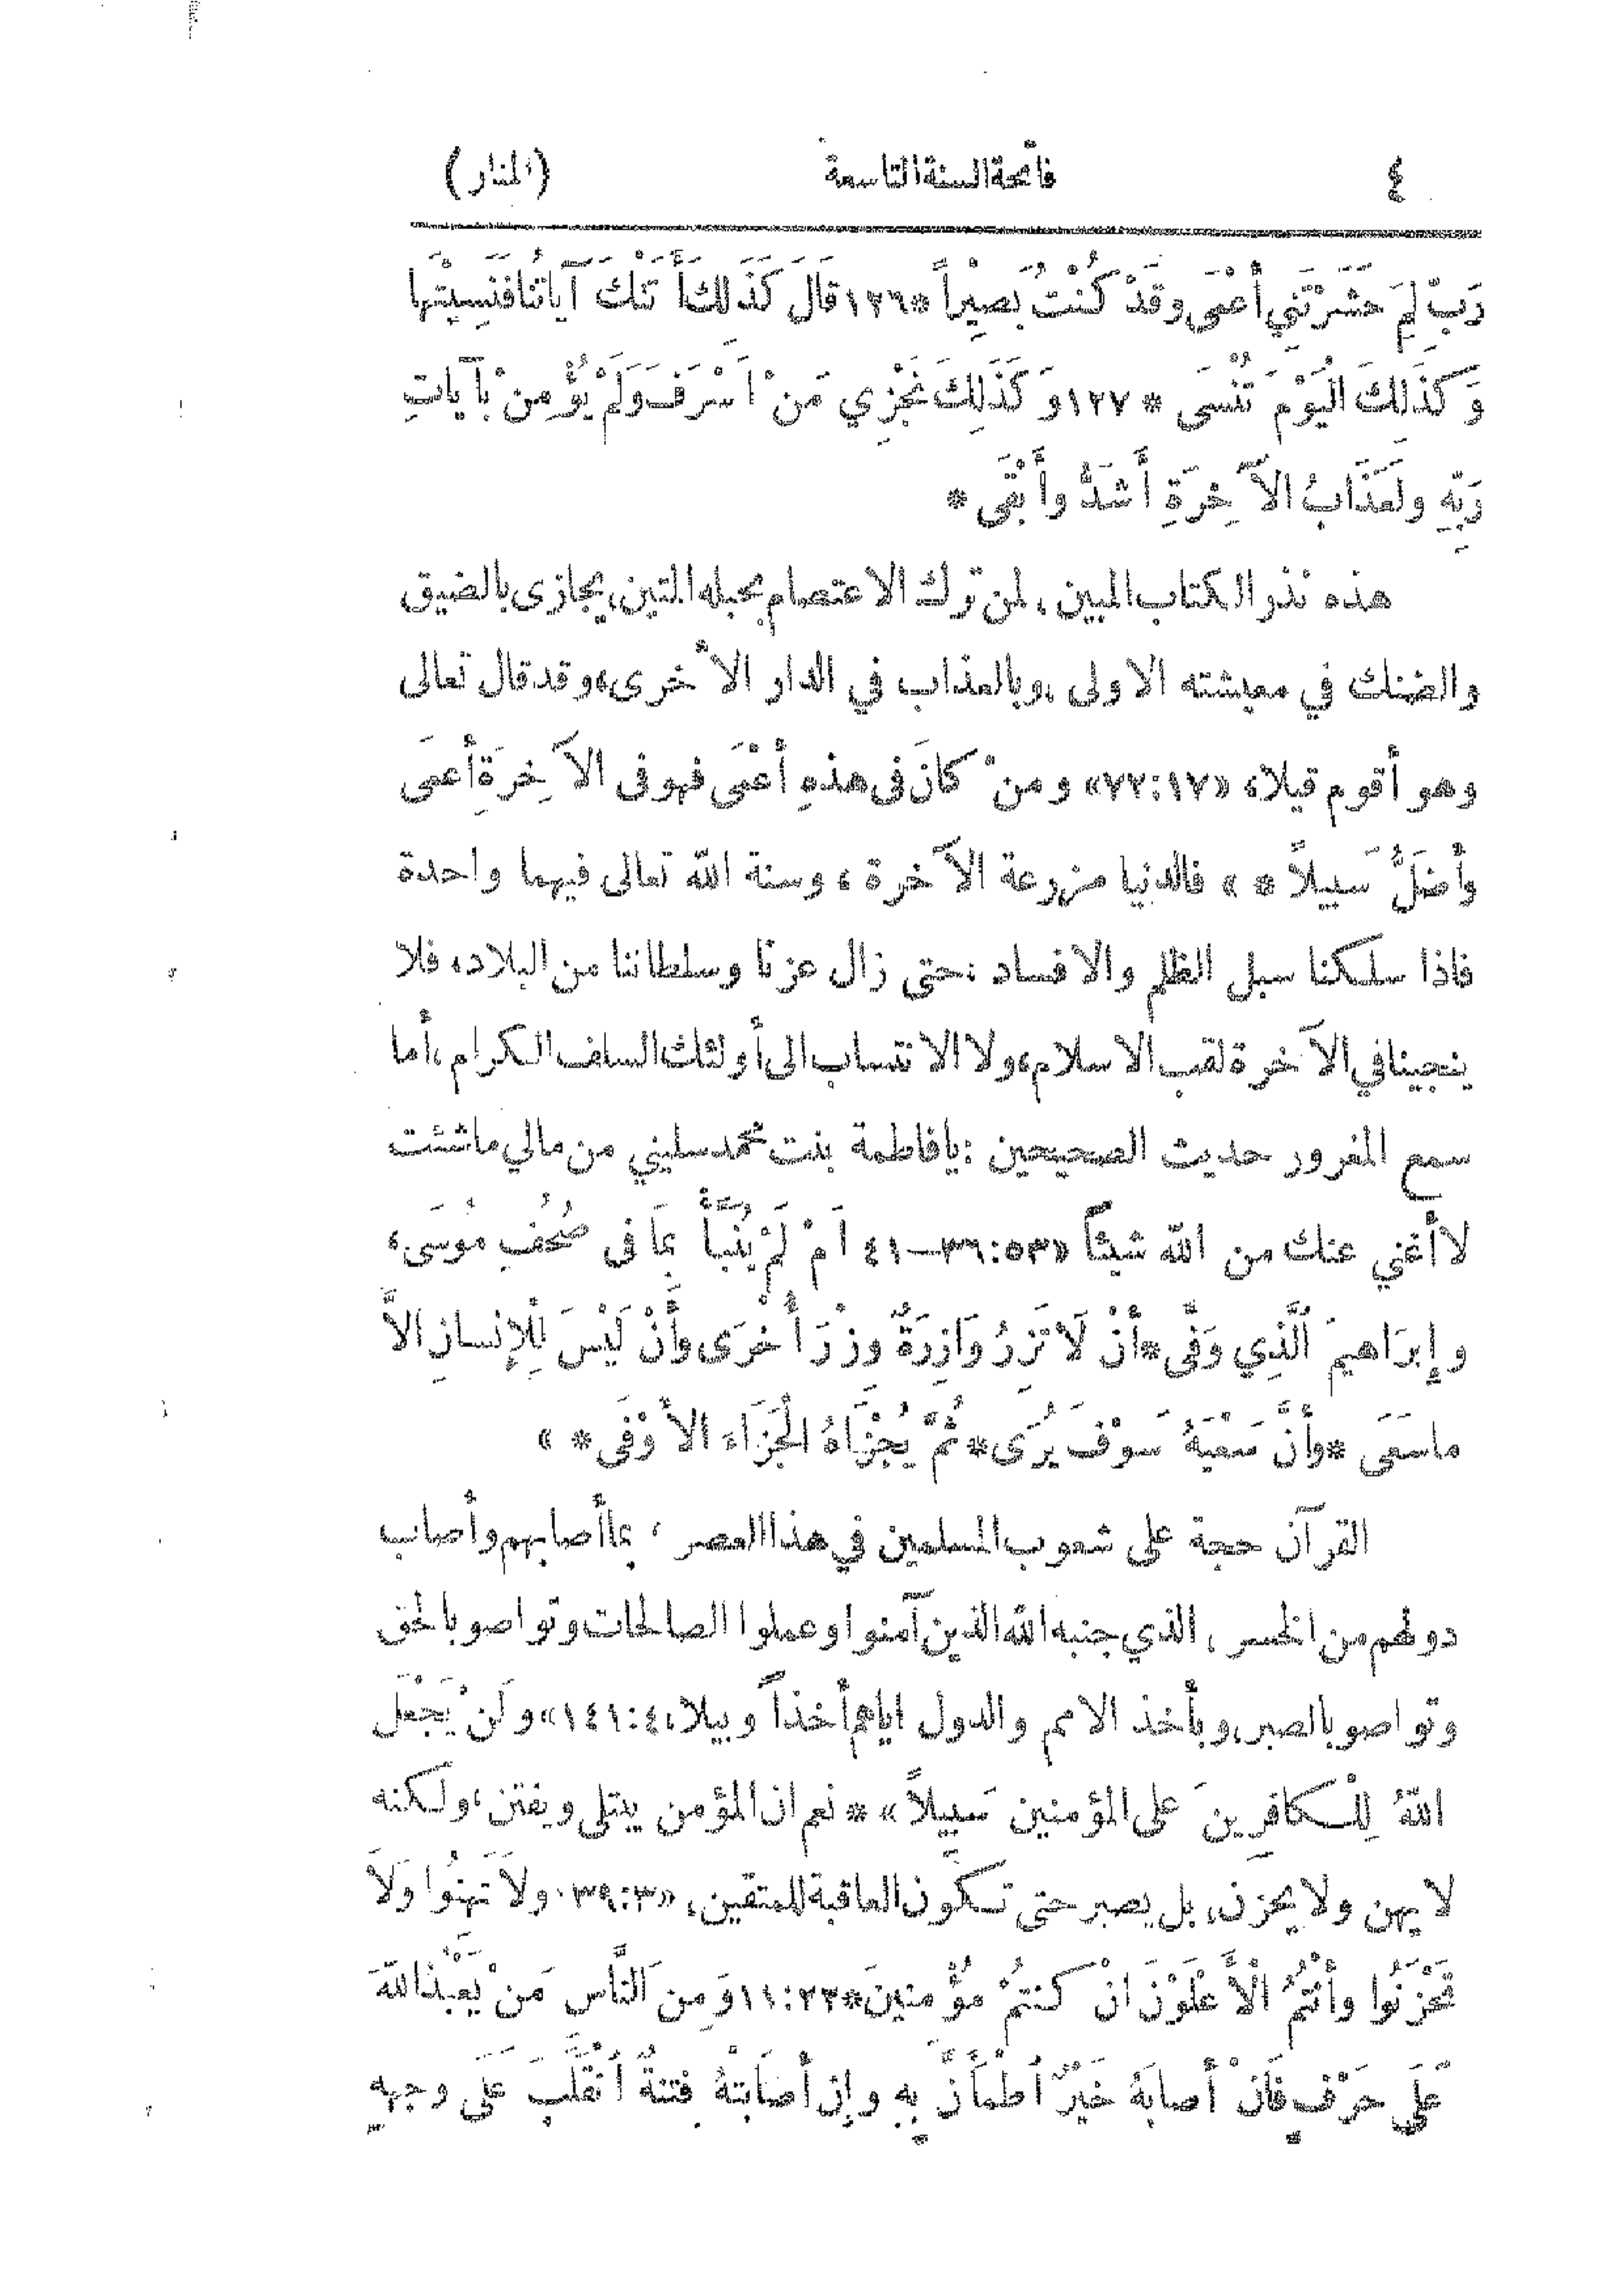 ٤ فاتحة السنة التاسعة (المنار)
رَبِّ لِمَ حَشَرْتَنِي أَعْمَى وقَدْ كُنْتُ بَصِيْراً * ١٢٦ قَالَ كَذَلِكَ أَ تَتْكَ آيَاتُنَا فَنَسِيتَهَا
وَكَذَلِكَ الْيَوْمَ تُنْسَى * ١٢٧ وَكَذَلِكَ نَجْزِي مَنْ اَسْرَفَ وَلَمْ يُؤْمِنْ بِآيَاتِ
رَبِّهِ ولَعَذَابُ الآخِرَةِ أَشَدُّ وأَبْقَى *
هذه نذر الكتاب المبين، لمن ترك الاعتصام بحبله المتين، يجازى بالضيق
والضنك في معيشته الاولى، وبالعذاب في الدار الأخرى، وقد قال تعالى
وهو أقوم قيلا، «٧٢:١٧» ومنْ كانَ فى هذهِ أَعْمَى فهو فى الآخِرَةِ أَعمَى
وأَضَلُّ سَبيلاً * » فالدنيا مزرعة الآخرة، وسنة الله تعالى فيهما واحدة
فاذا سلكنا سبل الظلم والافساد، حتى زال عزنا وسلطاننا من البلاد، فلا
ينجينا في الآخرة لقب الاسلام، ولا الانتساب الى أولئك السلف الكرام، أما
سمع المغرور حديث الصحيحين: يا فاطمة بنت محمد سليني من مالي ما شئت
لا أغني عنك من الله شيئاً «٣٦:٥٣—٤١ اَمْ لَمْ يُنَبَّأْ بِمَا فى صُحُفِ مُوسَى،
وإِبرَاهيمَ الَّذِي وَفَّى * أَنْ لاَ تَزِرُ وَازِرَةٌ وِزْرَ أُخْرَى وَأَنْ لَيْسَ لِلإِنسانِ الاَّ
ماسَعَى * وأَنَّ سَعْيَهُ سَوْفَ يُرَى * ثُمَّ يُجْزَاهُ الْجَزَاءَ الأَوْفَى * »
القرآن حجة على شعوب المسلمين في هذا العصر، بما أصابهم وأصاب
دولهم من الخسر، الذي جنبه الله الذين آمنوا وعملوا الصالحات وتواصو بالحق
وتواصو بالصبر، وبأخذ الامم والدول اياهم أخذاً وبيلا، ١٤١:٤» ولَنْ يَجْعَلَ
اللهُ لِلْكافِرِينَ على المؤمنين سَبيلاً» * نعم ان المؤمن يبتلى ويفتن، ولكنه
لا يهن ولا يحزن، بل يصبر حتى تكون العاقبة للمتقين، «٣٩:٣٠ ولا تَهِنُوا وَلاَ
تَحْزَنُوا وأَنْتُمُ الأَعْلَوْنَ انْ كنتمْ مُؤْمنينَ * ١١:٢٢ وَمِنَ النَّاسِ مَنْ يَعْبُدُ اللهَ
عَلَى حَرْفٍ فَانْ أَصابَهُ خَيْرٌ اَطْمأَنَّ بِهِ وإِن أَصَابَتْهُ فِتنةٌ انْقَلَبَ عَلَى وجههِ